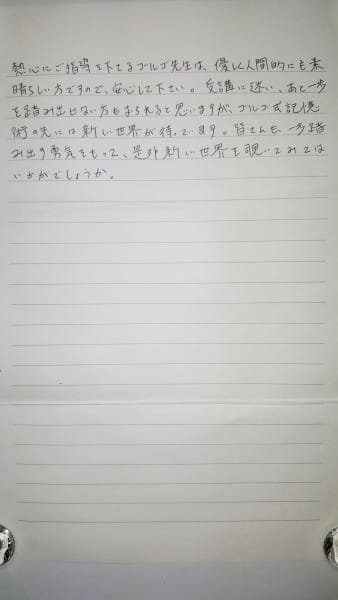 熱心にご指導を下さるゴルゴ先生は、優しく人間的にも素
晴らしい方ですので、安心して下さい。受講に迷い、あと一歩
を踏み出せない方もおられると思いますが、ゴルゴ式記憶
術の先には新しい世界が待っています。皆さんも、一歩踏
み出す勇気をもって、是非新しい世界を覗いてみては
いかがでしょうか。